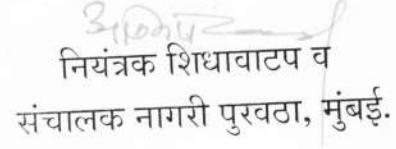 नियंत्रक शिधावाटप व
संचालक नागरी पुरवठा, मुंबई.